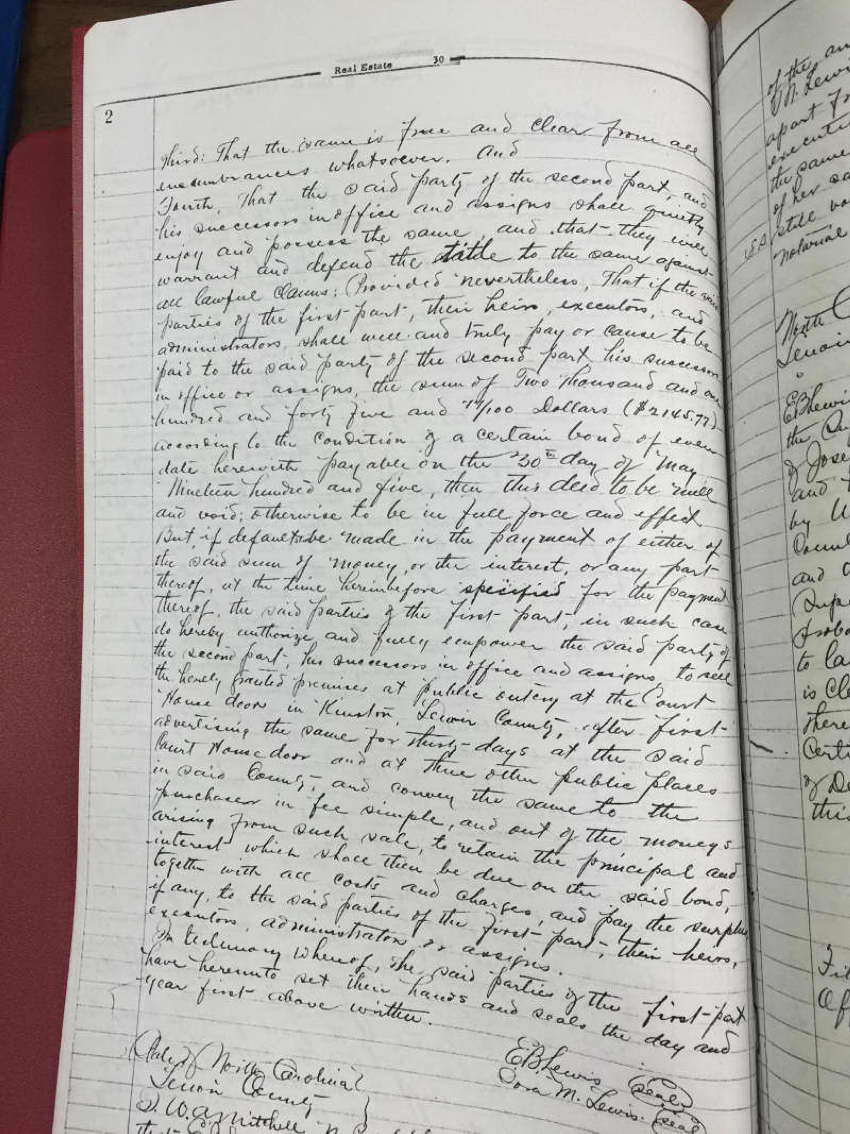 Real Estate 30
2
Third: That the same is free and clear from all
encumbrances whatsoever. and
Fourth, That the said party of the second part, and
his successors in office and assigns shall quietly
enjoy and possess the same, and that they will
warrant and defend the title to the same against
all lawful claims; Provided nevertheless, That if the said
parties of the first part, their heirs, executors, and
administrators, shall well and truly pay or cause to be
paid to the said party of the second part his successors
in office or assigns, the sum of Two Thousand and one
hundred and forty five and 77/100 Dollars ($2145.77)
according to the condition of a certain bond of even
date herewith payable on the 30th day of May
Nineteen hundred and five, then this deed to be null
and void; otherwise to be in full force and effect
But, if default be made in the payment of either of
the said sum of money, or the interest, or any part
thereof, at the time hereinbefore specified for the payment
thereof, the said parties of the first part, in such case
do hereby authorize and fully empower the said party of
the second part, his successors in office and assigns, to sell
the hereby granted premises at public outcry at the Court
House door in Kinston, Lenoir County, after first
advertising the same for thirty days at the said
Court House door and at three other public places
in said County, and convey the same to the
purchaser in fee simple, and out of the moneys
arising from such sale, to retain the principal and
interest which shall then be due on the said bond,
together with all costs and charges, and pay the surplus
if any, to the said parties of the first part, their heirs,
executors, administrators or assigns.
In testimony whereof, the said parties of the first part
have hereunto set their hands and seals the day and
year first above written.
E.B. Lewis (Seal)
Cora M. Lewis (Seal)
North Carolina
Lenoir County
W. A. Mitchell
of the
N. Lewis
apart
the same
of her
still
notarial
North
Lenoir
E B Lewis
the
of Jose
and
by
and
to
is
there
Certi
of
this